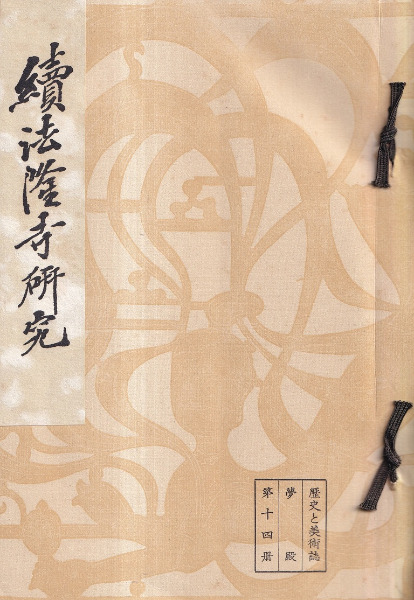 續法隆寺研究
歷史と美術誌
夢殿
第十四册